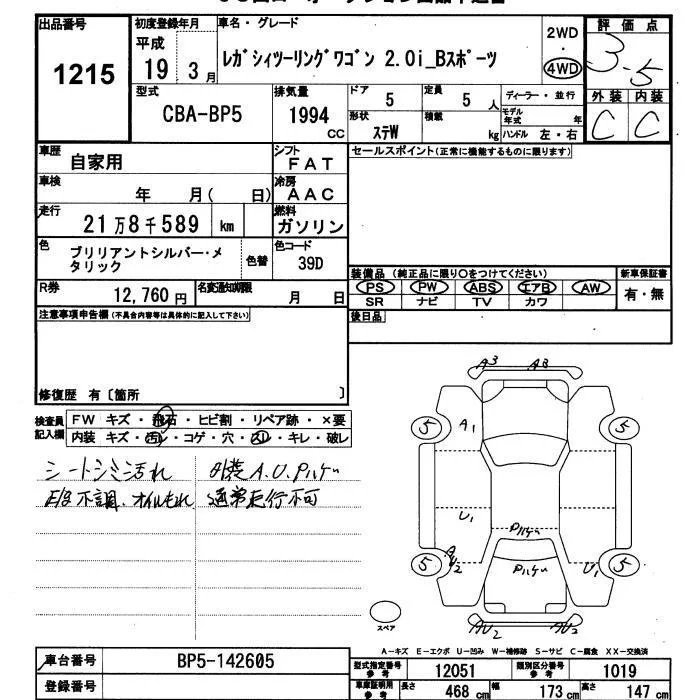 出品番号 初度登録年月 車名・グレード 評価点
1215 平成 19 3月 レガシィツーリングワゴン 2.0i_Bスポーツ 2WD・4WD 3.5
型式 排気量 ドア 定員 ディーラー・並行 外装 内装
CBA-BP5 1994 CC 5 5人 モデル年式 年 C C
形状 ステW 積載 kg ハンドル 左・右
車歴 自家用 シフト FAT セールスポイント(正常に機能するものに限ります)
車検 年 月( 日) 冷房 AAC
走行 21万8千589 km 燃料 ガソリン
色 ブリリアントシルバー・メタリック 色替 色コード 39D
装備品(純正品に限り○をつけてください) 新車保証書
R券 12,760円 名変通知期限 月 日 PS PW ABS エアB AW 有・無
SR ナビ TV カワ
注意事項申告欄(不具合内容等は具体的に記入して下さい) 後日品
修復歴 有〔箇所 〕
検査員記入欄 FW キズ・飛石・ヒビ割・リペア跡・×要
内装 キズ・汚レ・コゲ・穴・スレ・キレ・破レ
シートシミ汚れ 外装A.U.
不調.オイルもれ 通常走行不可
A3 A3
5 A1 5
U1
5 A U2 U1 5
AU2 AU2
スペア
A-キズ E-エクボ U-凹み W-補修跡 S-サビ C-腐食 XX-交換済
車台番号 BP5-142605 型式指定番号 参考 12051 類別区分番号 参考 1019
登録番号 車庫証明用 参考 長さ 468 cm 幅 173 cm 高さ 147 cm